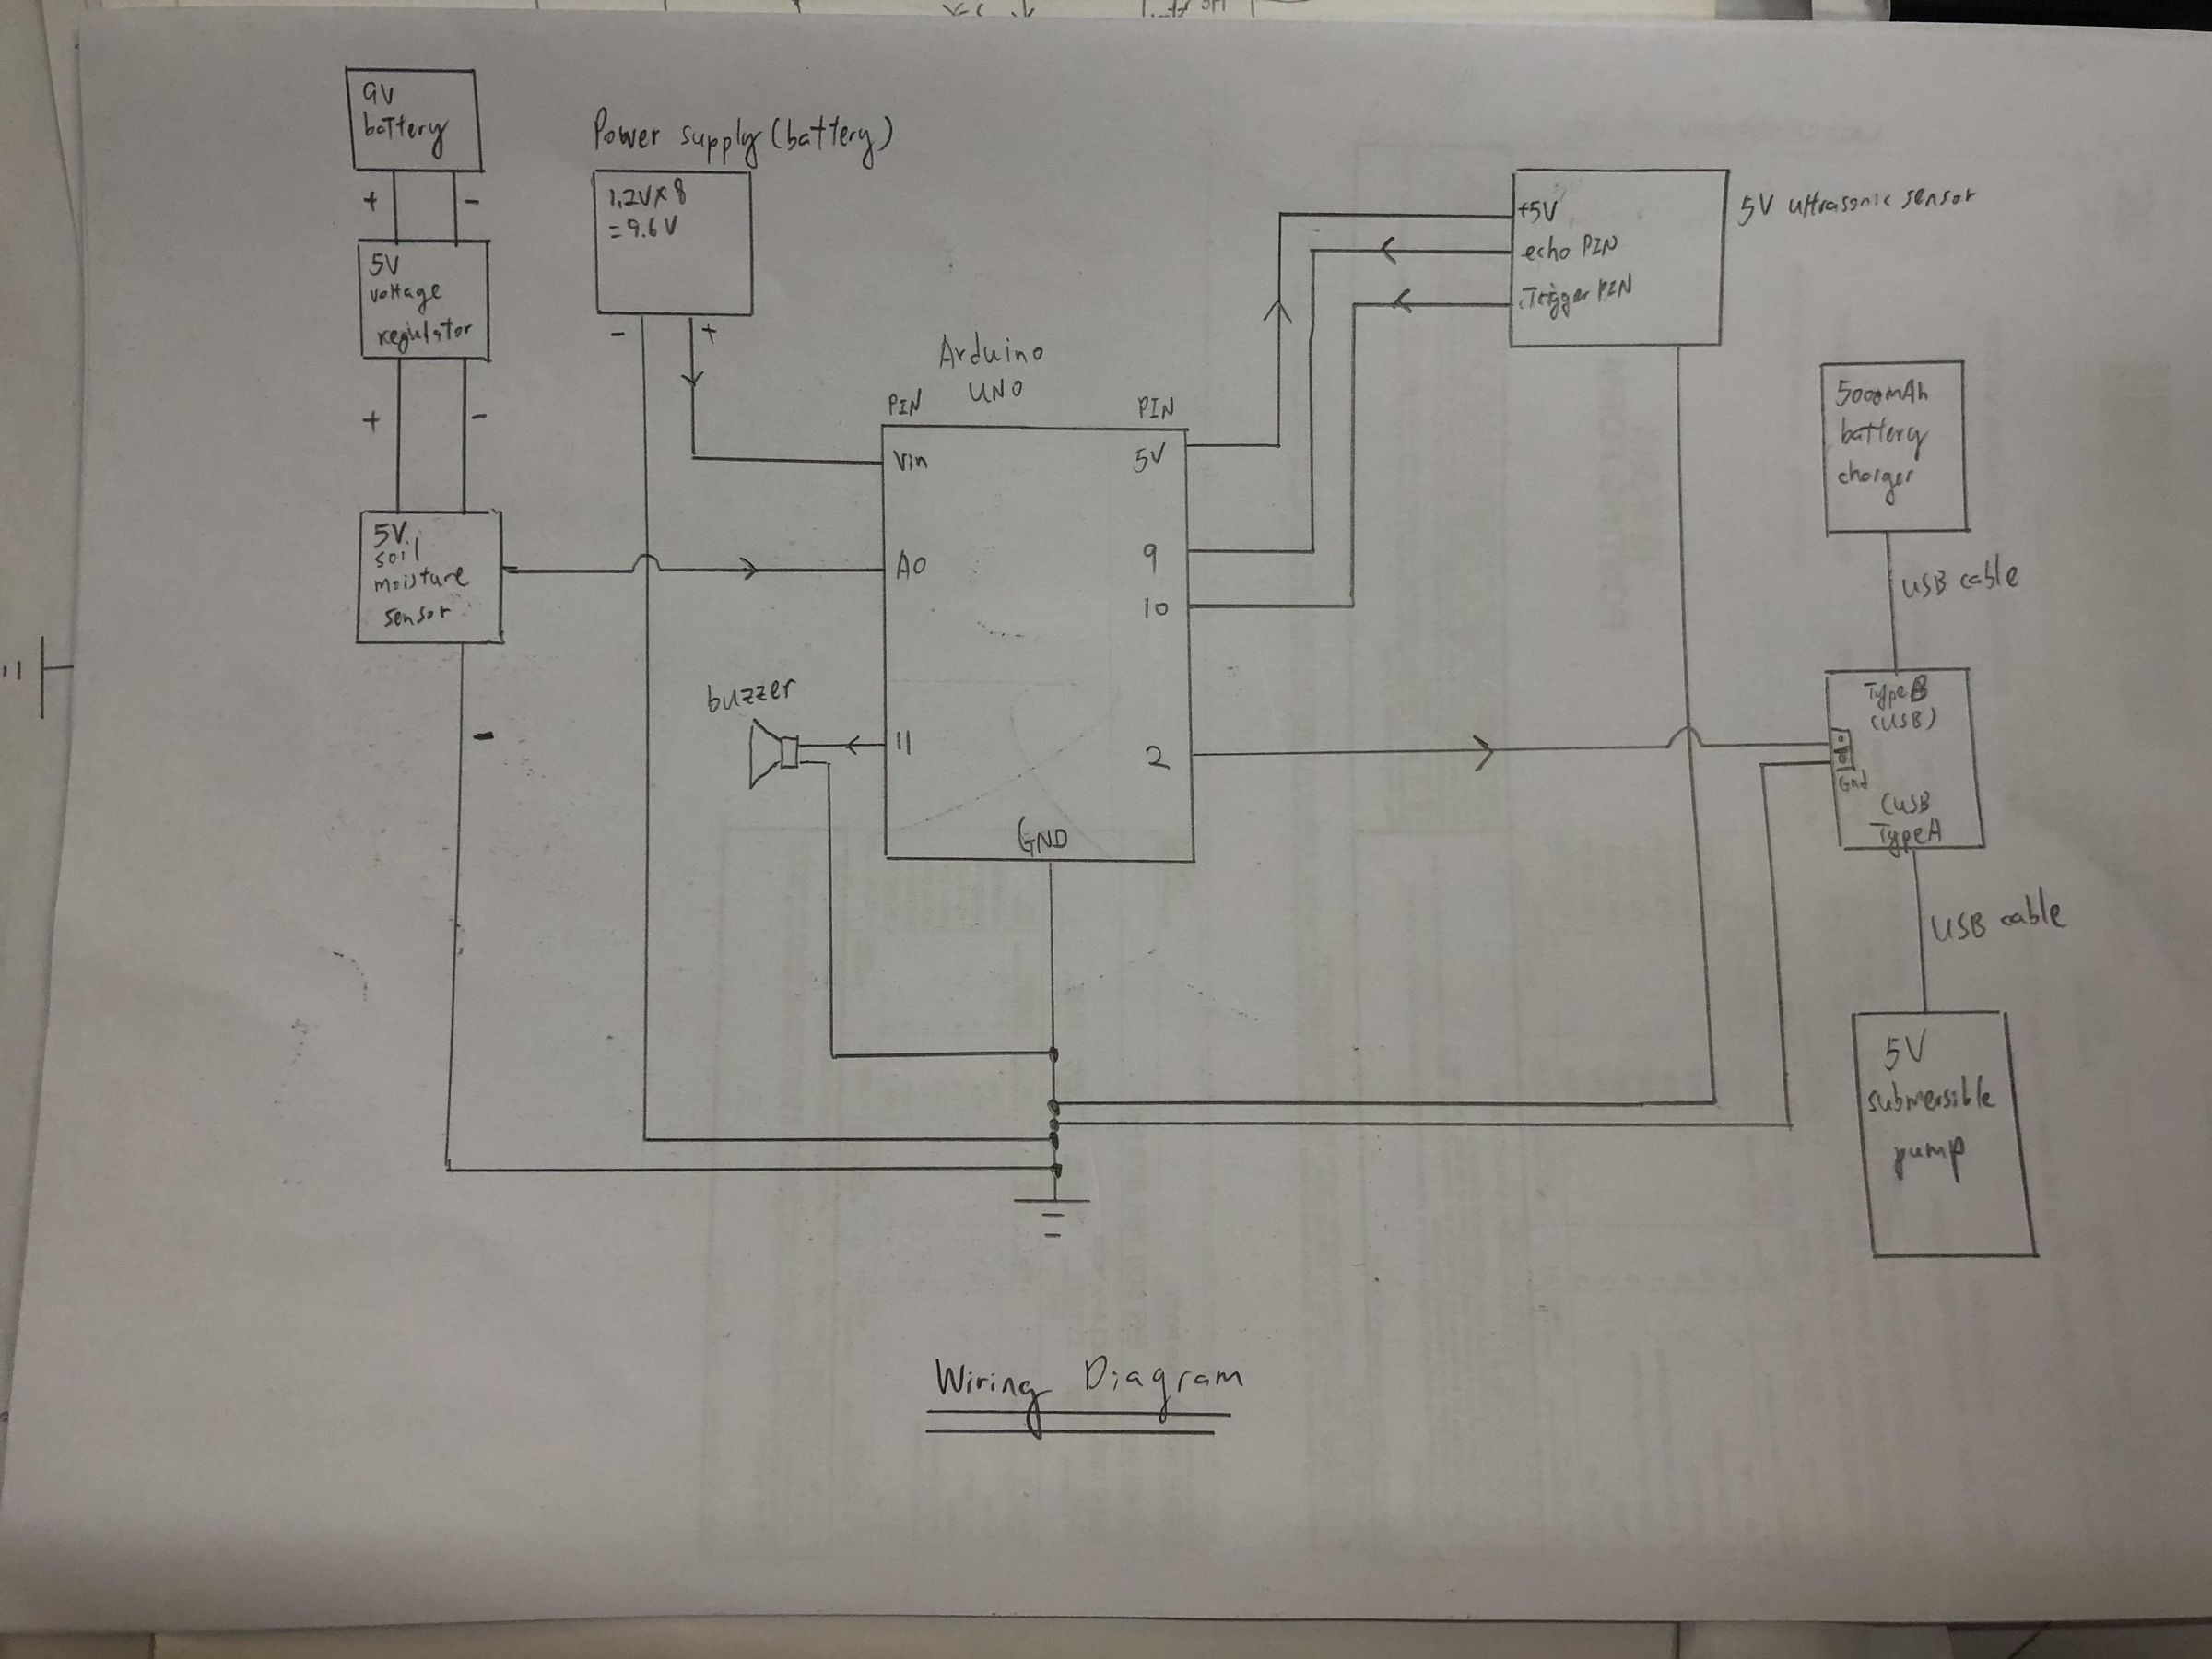 9V
battery
+
-
5V
voltage
regulator
+
-
5V
soil
moisture
sensor
-
Power supply (battery)
1.2V x 8
= 9.6V
-
+
Arduino
UNO
PIN
PIN
Vin
5V
A0
9
10
11
2
GND
buzzer
+5V
echo PIN
Trigger PIN
5V ultrasonic sensor
5000mAh
battery
charger
USB cable
Type B
(USB)
Gnd
(USB
Type A
USB cable
5V
submersible
pump
Wiring Diagram